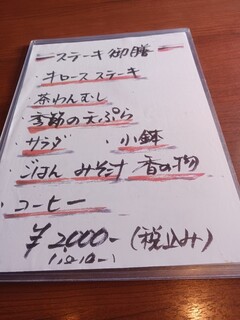 ーステーキ御膳ー
・牛ロースステーキ
茶わんむし
・季節の天ぷら
・サラダ ・小鉢
・ごはん みそ汁 香の物
・コーヒー
¥2,000-(税込み)